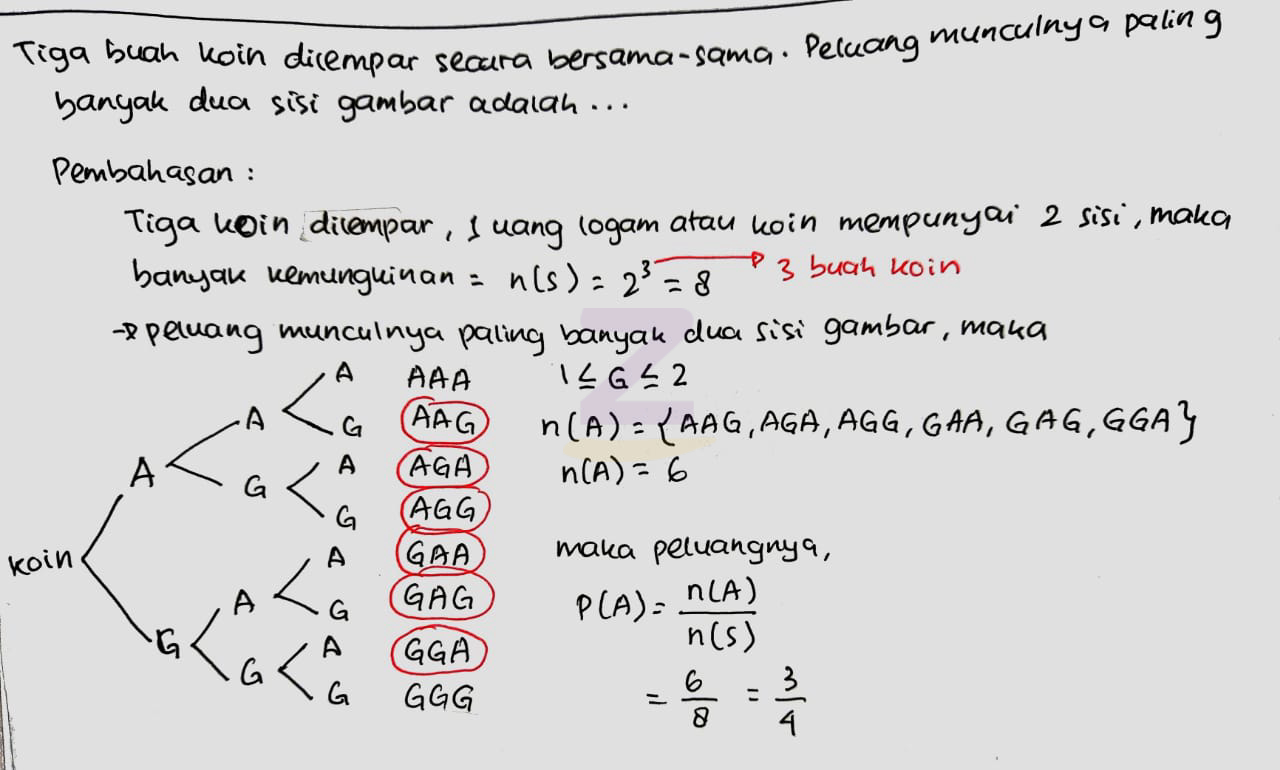 Tiga buah koin dilempar secara bersama-sama. Peluang munculnya paling
banyak dua sisi gambar adalah...
Pembahasan :
Tiga koin dilempar, 1 uang logam atau koin mempunyai 2 sisi, maka
banyak kemungkinan = n(s) = 2³ = 8 → 3 buah koin
→ peluang munculnya paling banyak dua sisi gambar, maka
A AAA 1 ≤ G ≤ 2
A G AAG n(A) = {AAG, AGA, AGG, GAA, GAG, GGA}
A G A AGA n(A) = 6
G AGG
koin A GAA maka peluangnya,
A G GAG P(A) = n(A)/n(s)
G G A GGA
G GGG = 6/8 = 3/4